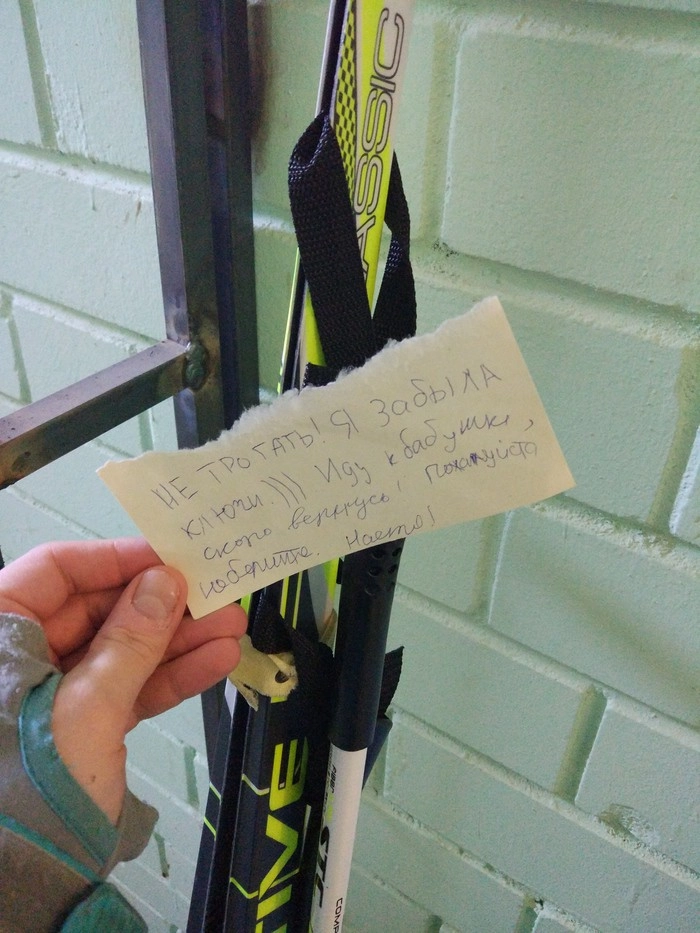 ASSIC
НЕ ТРОГАТЬ! Я ЗАБЫЛА
КЛЮЧИ.))) Иду к бабушке,
скоро вернусь, пожалуйста
наберите. Настя!
TIVE
STC
COMP